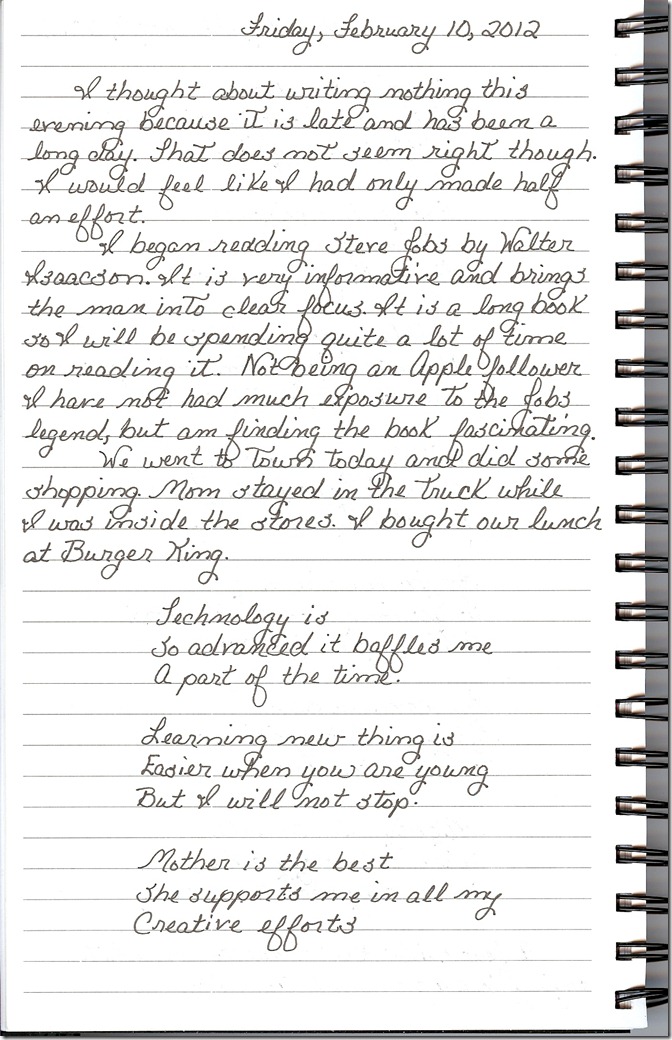 Friday, February 10, 2012
I thought about writing nothing this
evening because it is late and has been a
long day. That does not seem right though.
I would feel like I had only made half
an effort.
I began reading Steve Jobs by Walter
Isaacson. It is very informative and brings
the man into clear focus. It is a long book
so I will be spending quite a lot of time
on reading it. Not being an Apple follower
I have not had much exposure to the Jobs
legend, but am finding the book fascinating.
We went to Town today and did some
shopping. Mom stayed in the Truck while
I was inside the stores. I bought our lunch
at Burger King.
Technology is
so advanced it baffles me
A part of the time.
Learning new thing is
Easier when you are young
But I will not stop.
Mother is the best
she supports me in all my
Creative efforts